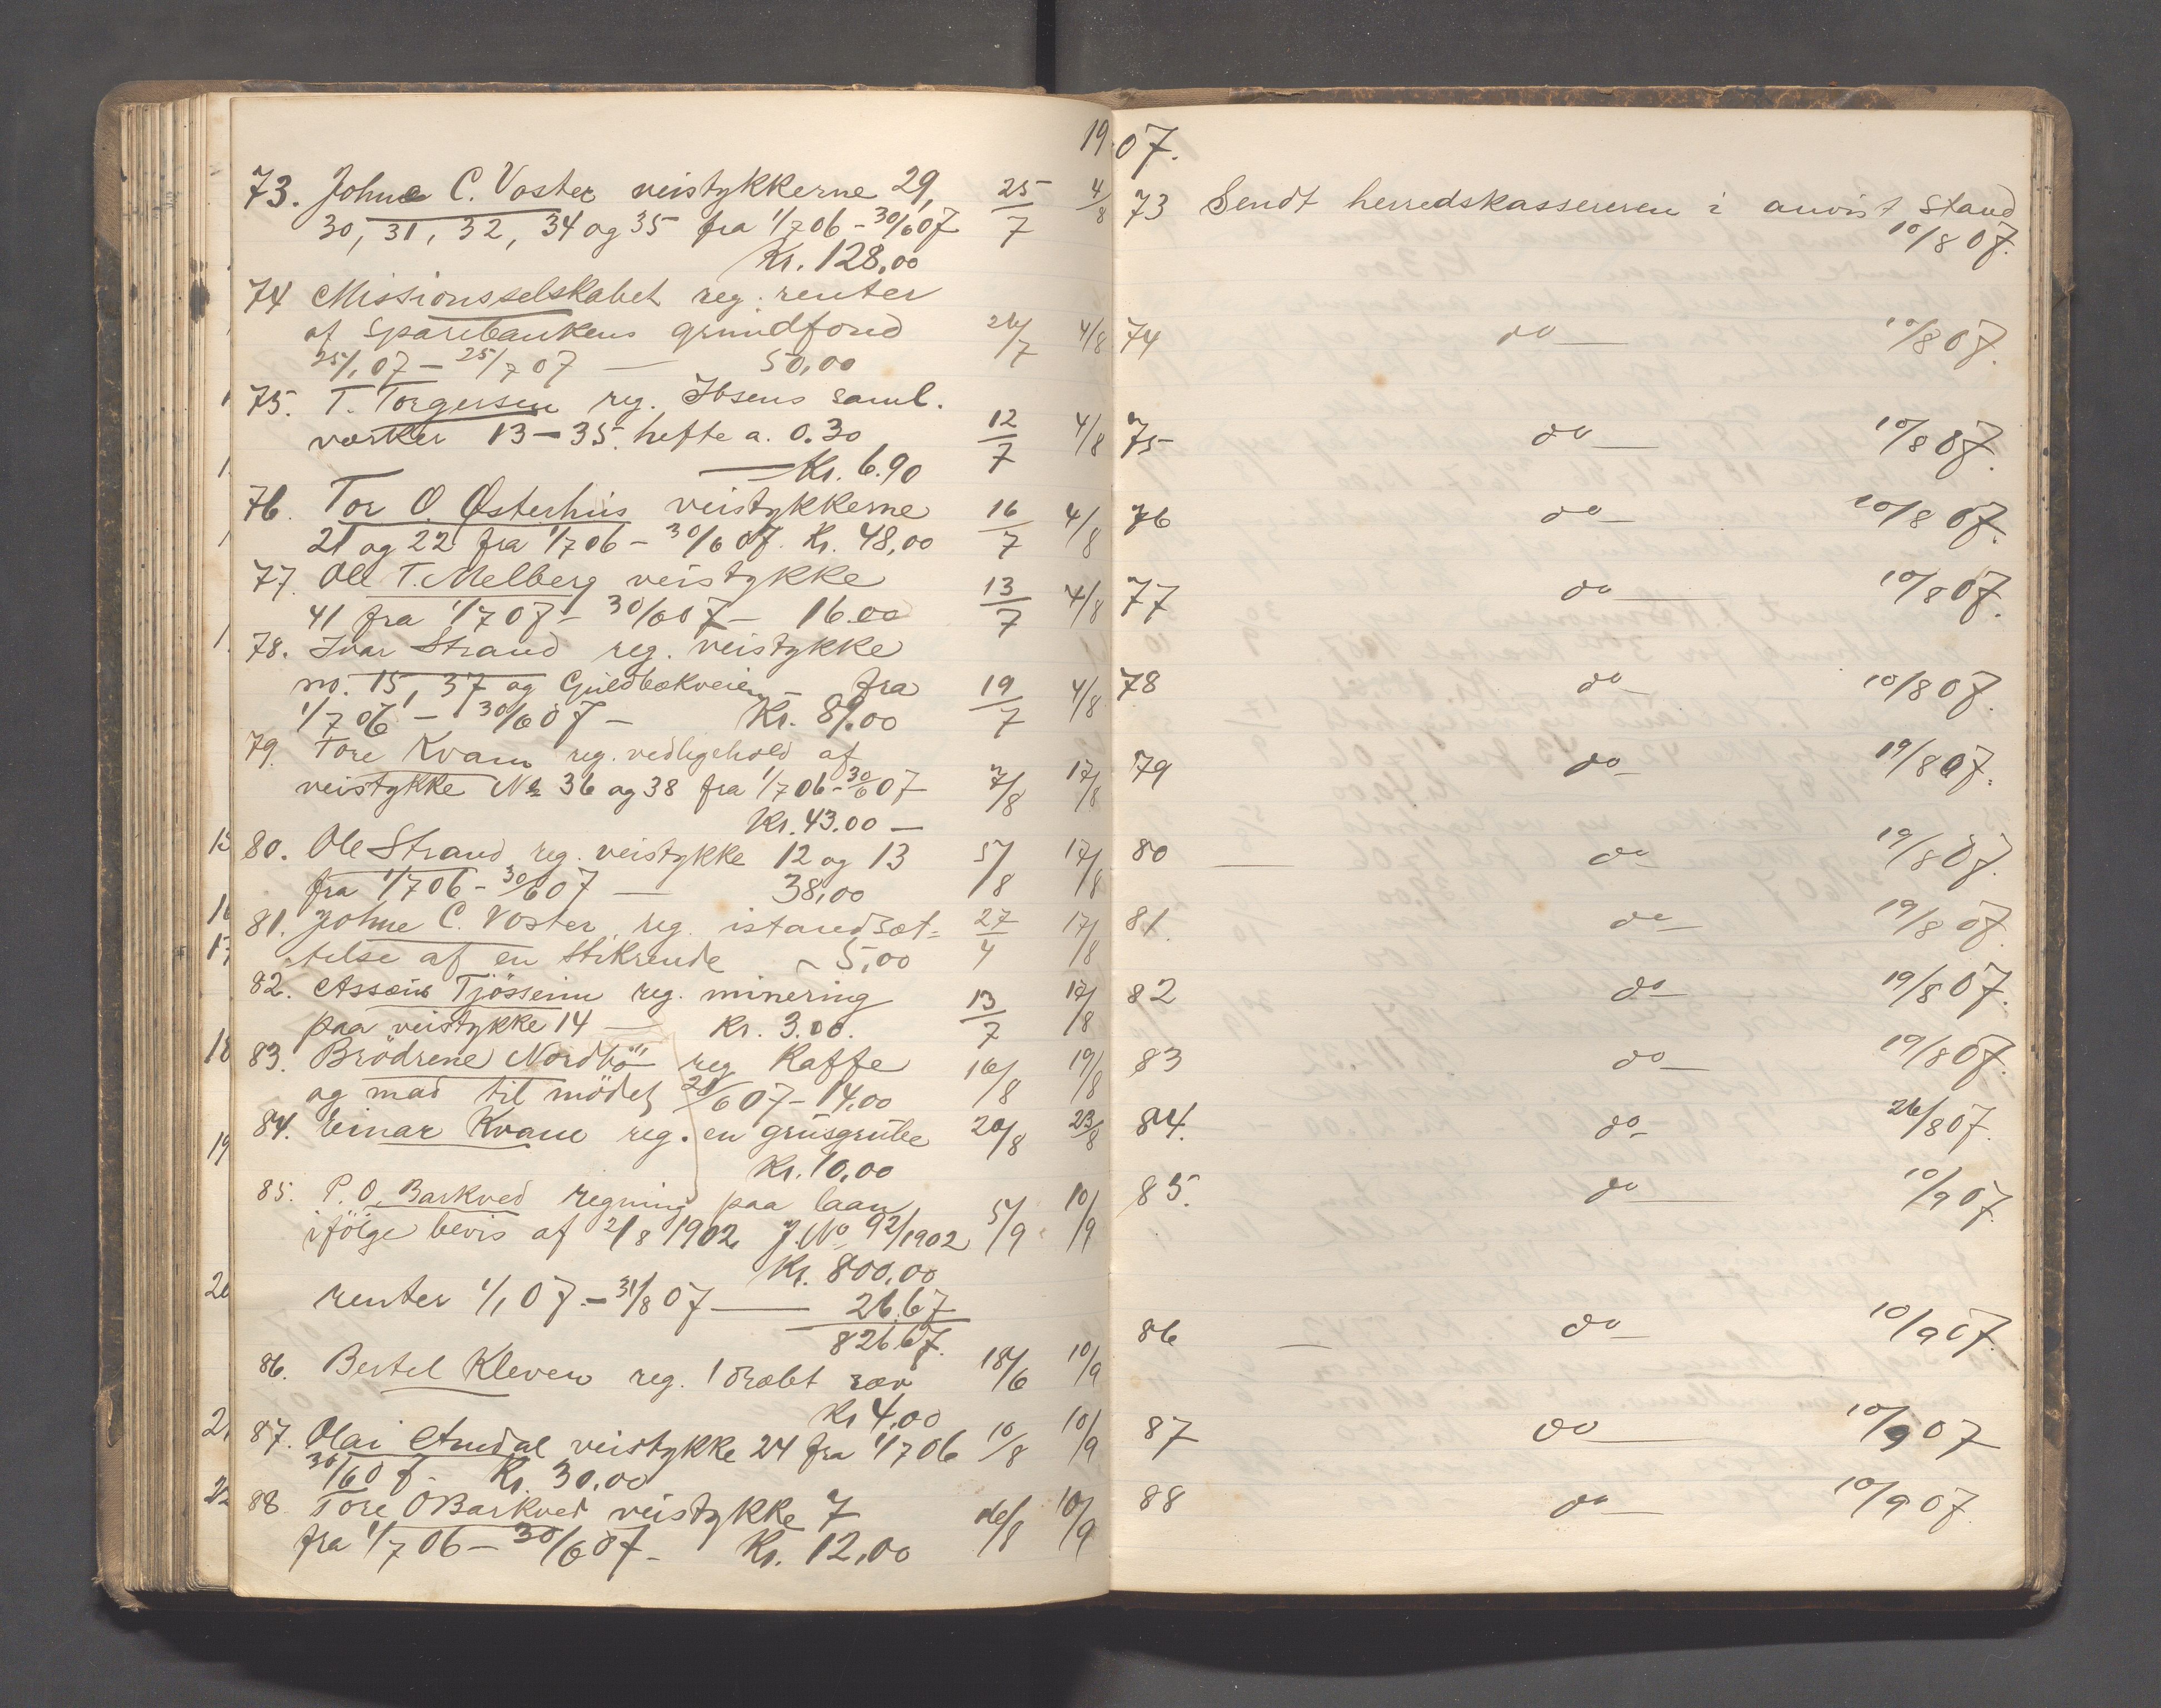 1907.
73. Johne C. Voster veistykkerne 29, 25/7 4/8
30, 31, 32, 34 og 35 fra 1/7 06 - 30/6 07
Kr. 128,00
74 Missionsselskabet reg. renter
af sparebankens grundfond 26/7 4/8
25/1 07 - 25/7 07 — 50,00
75. T. Torgersen reg. Ibsens saml.
værker 13 - 35. hefte a. 0.30 12/7 4/8
— Kr. 6.90
76. Tor O. Østerhus veistykkerne 16/7 4/8
21 og 22 fra 1/7 06 - 30/6 07. Kr. 48,00
77. Ole T. Melberg veistykke 13/7 4/8
41 fra 1/7 07 - 30/6 07 - 16.00
78. Ivar Strand reg. veistykke
no. 15, 37 og Guldbækveien - fra 19/7 4/8
1/7 06 - 30/6 07 - Kr. 89.00
79. Tore Kvam reg. vedligehold af
veistykke No 36 og 38 fra 1/7 06 - 30/6 07 7/8 17/8
Kr. 43.00 —
80. Ole Strand reg. veistykke 12 og 13 5/8 17/8
fra 1/7 06 - 30/6 07 — 38,00
81. Johne C. Voster reg. istandsæt= 27/4 17/8
telse af en stikrende - 5,00
82. Assæus Tjösseim reg. minering 13/7 17/8
paa veistykke 14 — Kr. 3.00.
83. Brödrene Nordbö reg Kaffe 16/8 19/8
og mad til mödet 28/6 07 - 14.00
84. Einar Kvam reg. en grusgrube 20/8 23/8
Kr. 10,00
85. P. O. Barkved regning paa laan 5/9 10/9
ifölge bevis af 2/8 1902 J. No 92/1902
Kr. 800,00
renter 1/1 07 - 31/8 07 — 26.67
826.67.
86. Bertel Kleven reg. 1 dræbt ræv 18/6 10/9
Kr 4,00
87. Olai Amdal veistykke 24 fra 1/7 06 10/8 10/9
30/6 07 - Kr. 30.00
88. Tore O Barkved veistykke 7 16/8 10/9
fra 1/7 06 - 30/6 07 - Kr. 12,00
73 Sendt herredskassereren i anvist stand
10/8 07.
74 do — 10/8 07.
75 do — 10/8 07.
76 do — 10/8 07.
77 do — 10/8 07.
78 do — 10/8 07.
79 do — 19/8 07.
80 — do — 19/8 07.
81. do — 19/8 07.
82 do — 19/8 07.
83 do — 19/8 07.
84. do — 26/8 07.
85. do — 10/9 07.
86 — do — 10/9 07.
87 do — 10/9 07
88 do — 10/9 07.